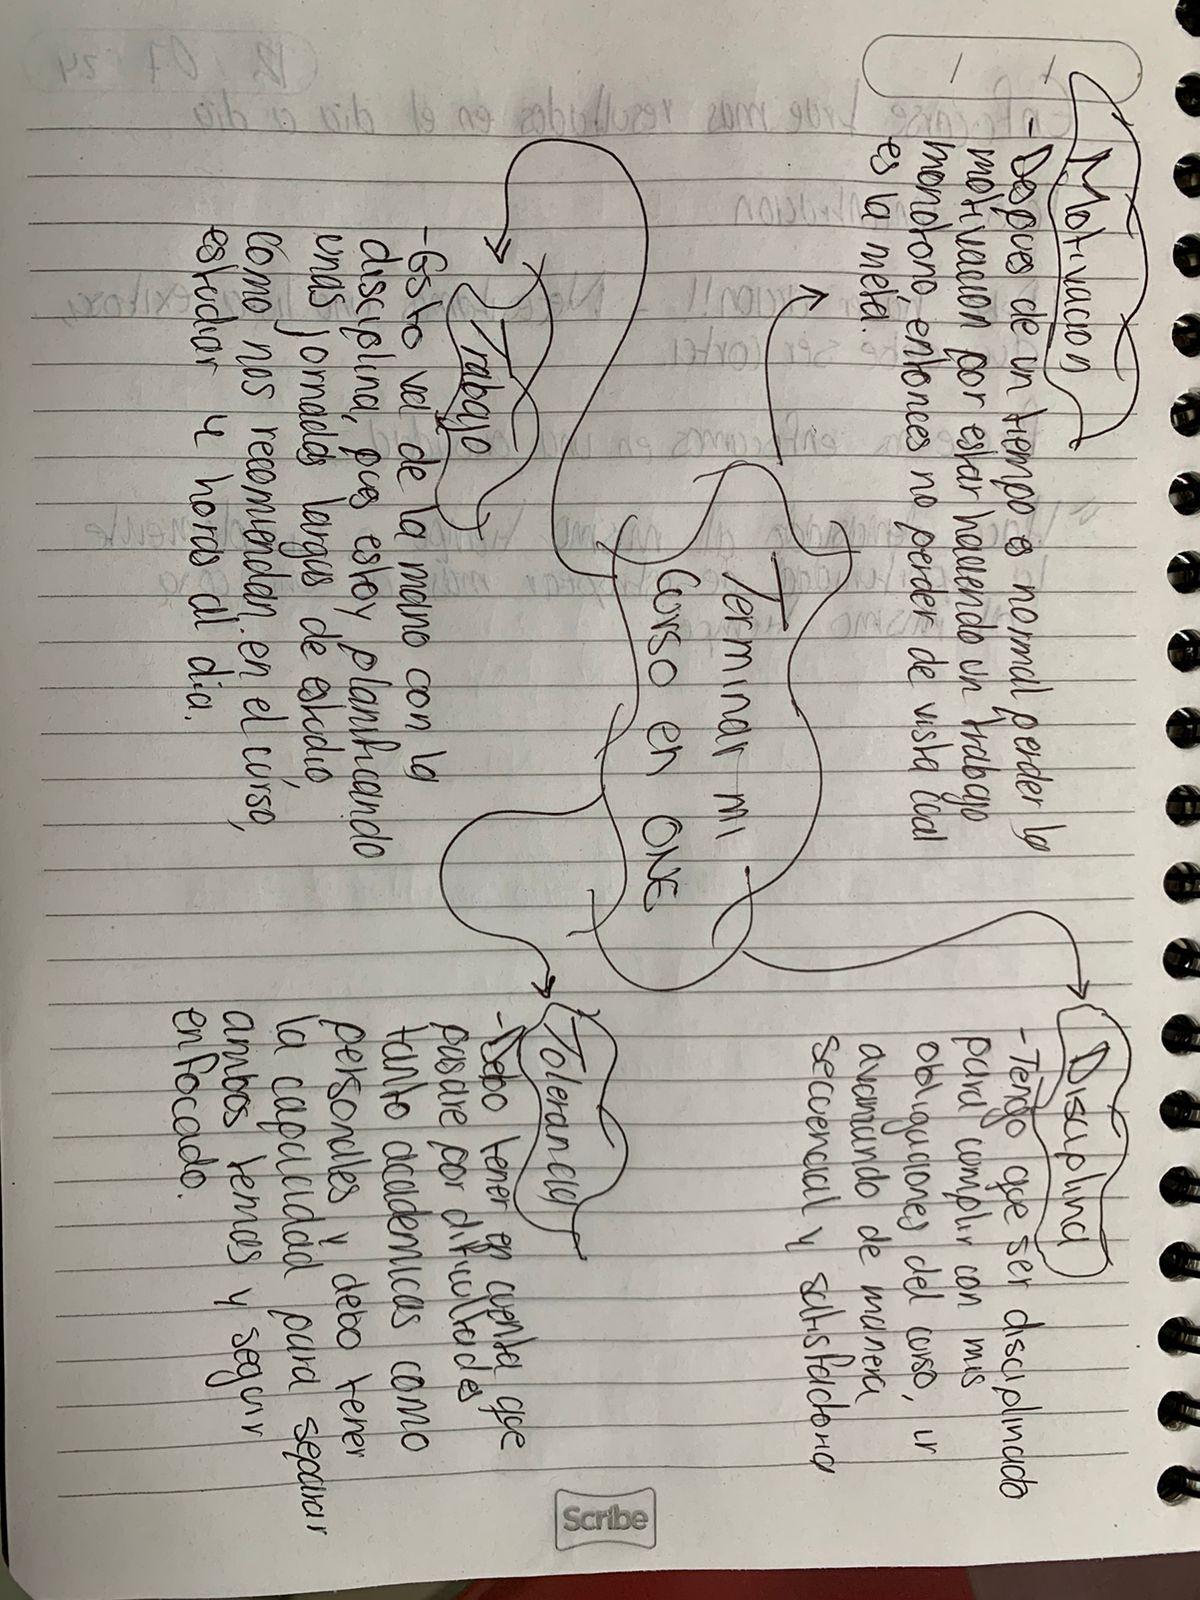 Motivacion
- Despues de un tiempo es normal perder la
motivacion por estar haciendo un trabajo
monotono, entonces no perder de vista cual
es la meta.
Disciplina
- Tengo que ser disciplinado
para cumplir con mis
obligaciones del curso, ir
avanzando de manera
secuencial y satisfactoria
Terminar mi
Curso en ONE
Trabajo
- Esto va de la mano con la
disciplina, pues estoy planificando
unas jornadas largas de estudio,
como nos recomiendan en el curso,
estudiar 4 horas al dia.
Tolerancia
- Debo tener en cuenta que
pasare por dificultades
tanto academicas como
personales y debo tener
la capacidad para separar
ambos temas y seguir
enfocado.
Scribe